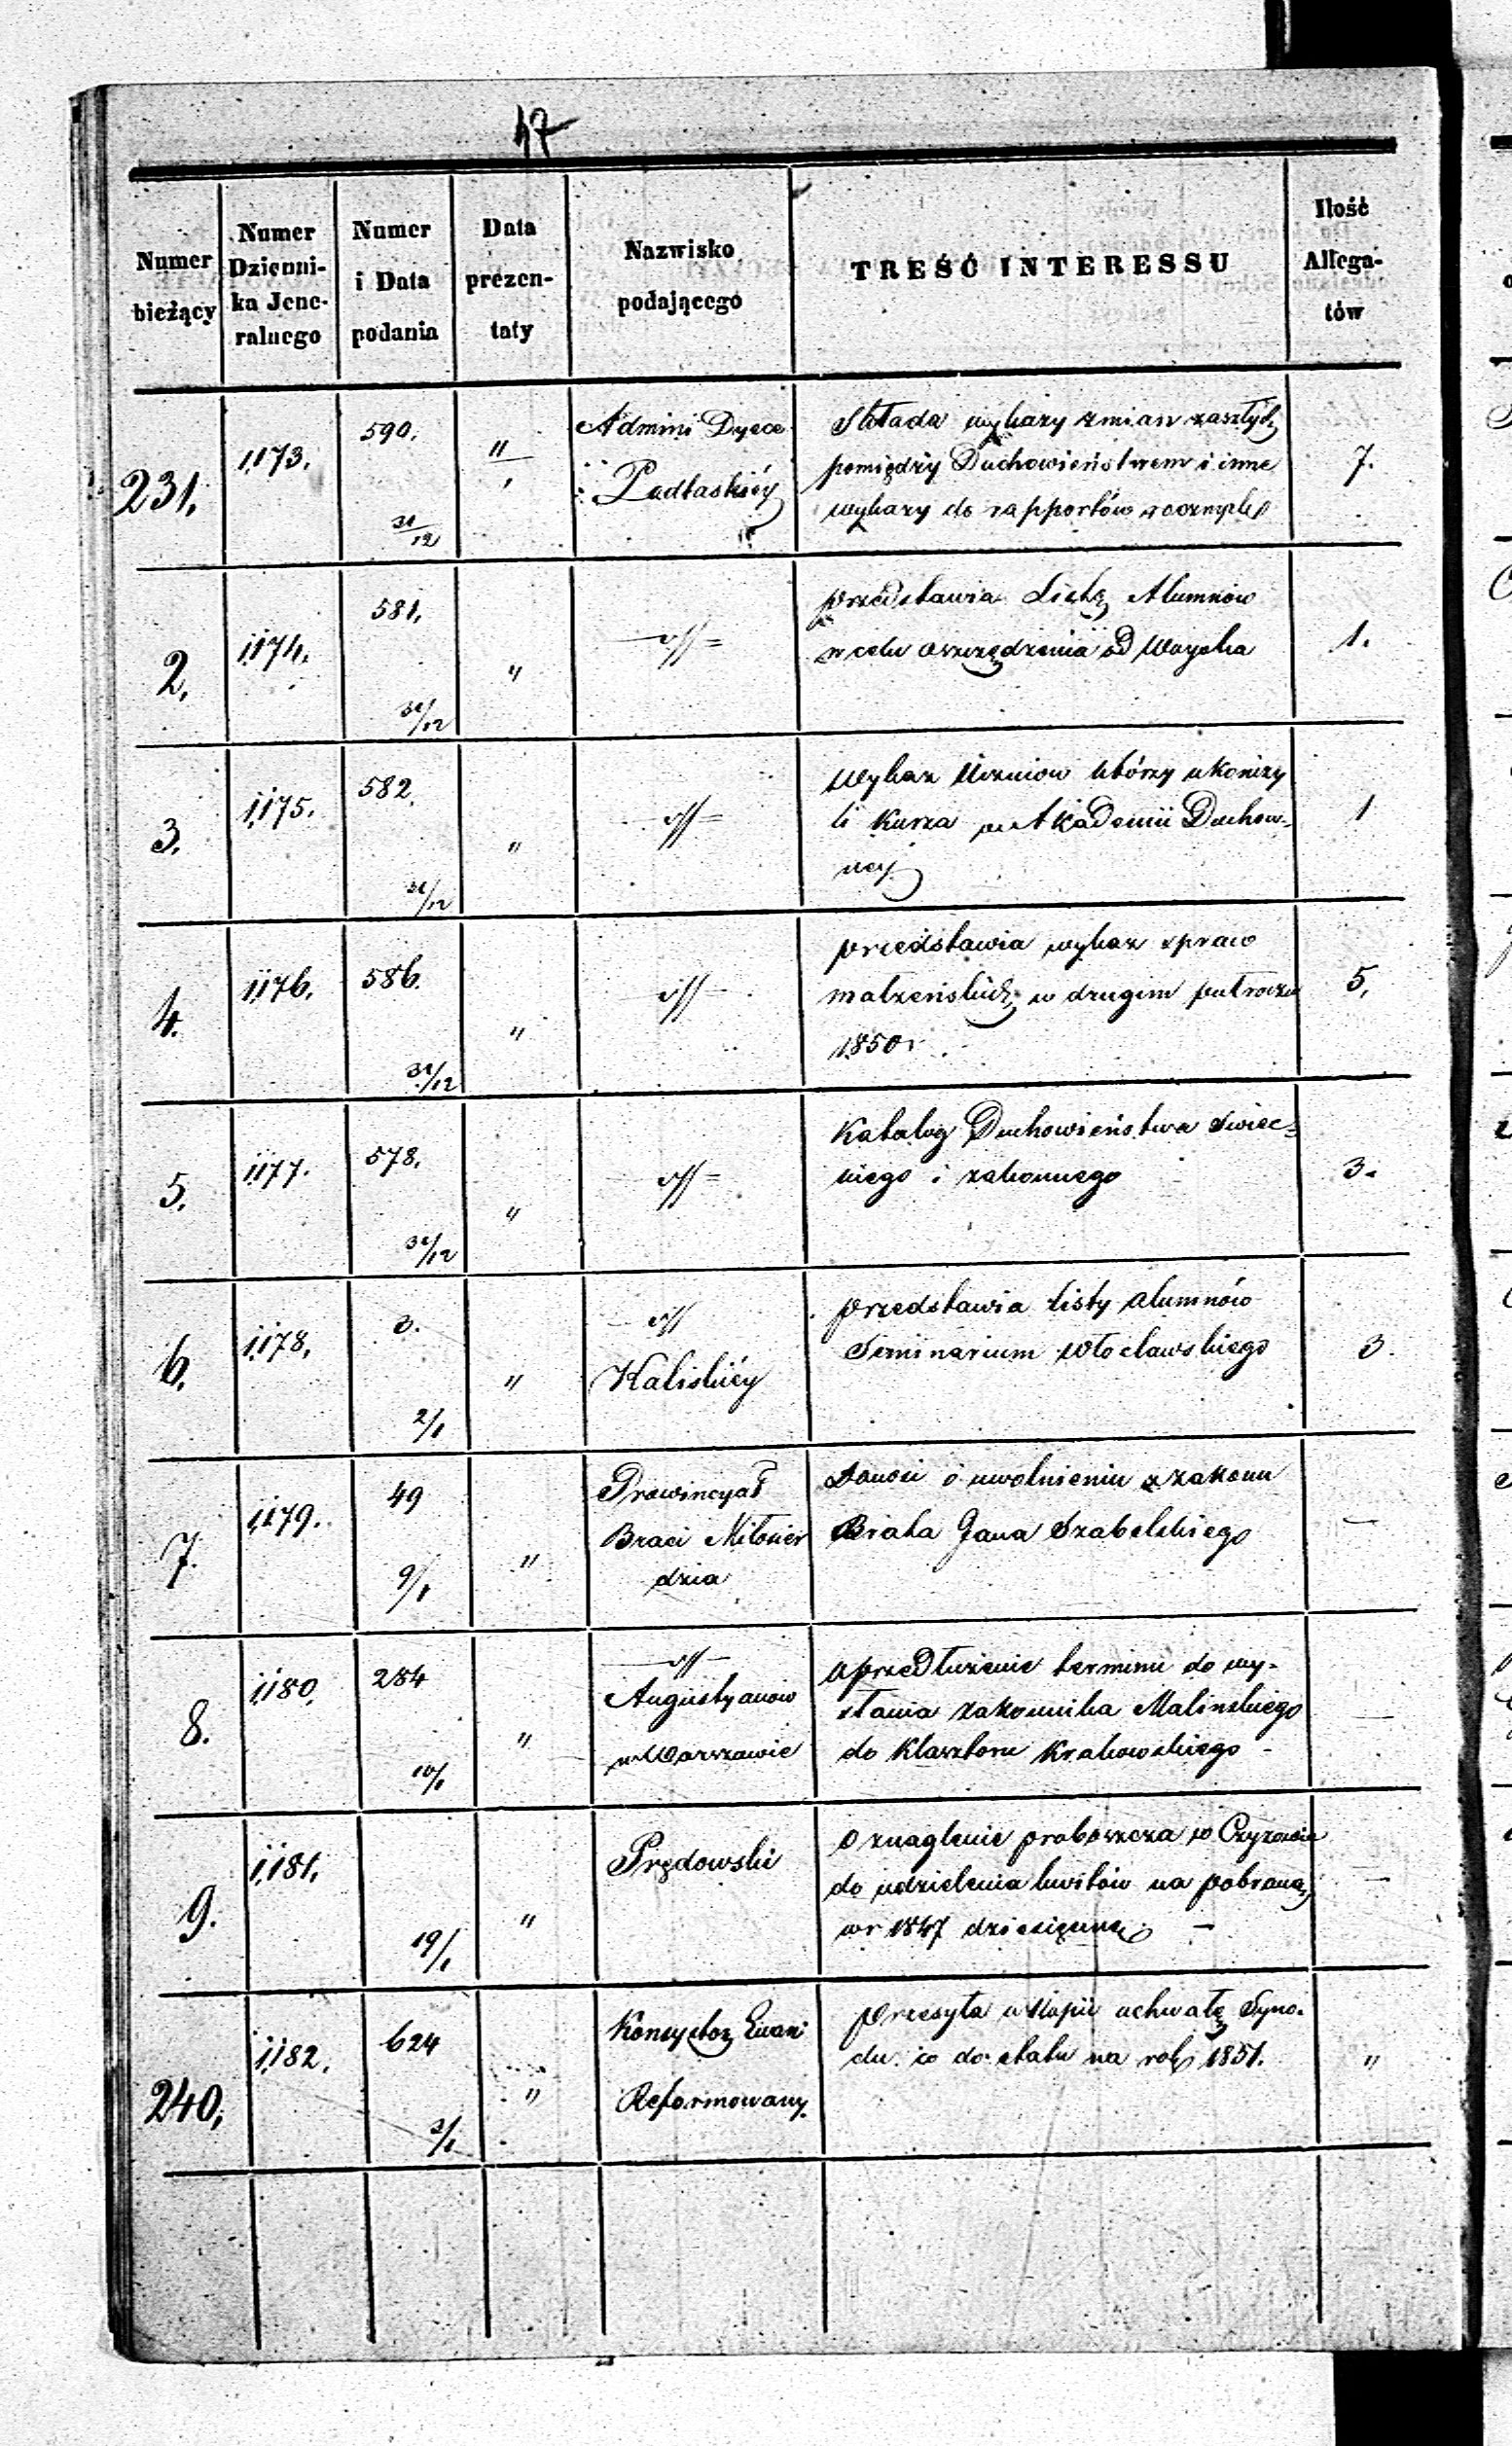 47
Numer bieżący
Numer Dzienni-ka Jene-ralnego
Numer i Data podania
Data prezen-taty
Nazwisko podającego
TREŚĆ INTERESSU
Ilość Allega-tów
231.
1,173.
590.
31/12
11
Admini Dyece
Podlaskiéy
Składa wykazy zmian zaszłych
pomiędzy Duchowieństwem i inne
wykazy do rapportów rocznych
7.
2.
1,174.
581.
31/12
"
przedstawia Listę Alumnów
w celu oszczędzenia od Woyska
1.
3.
1,175.
582.
31/12
"
Wykaz Uczniów którzy ukończy
li Kursa w Akademii Duchow-
néy
1
4.
1,176.
586.
31/12
"
przedstawia wykaz spraw
małżeńskich w drugim półroczu
1850 r.
5.
5.
1,177.
578.
31/12
"
Katalog Duchowieństwa świec-
kiego i zakonnego
3.
6.
1,178.
3.
2/1
"
Kaliskiéy
przedstawia listy alumnów
Seminarium Włocławskiego
3.
7.
1,179.
49
9/1
"
Prowincyał
Braci Miłosier
dzia
Donosi o uwolnieniu z zakonu
Brata Jana Szabelskiego
—
8.
1,180.
284
10/1
"
Augustyanów
w Warszawie
o przedłużenie terminu do wy-
słania zakonnika Malinskiego
do Klasztoru Krakowskiego -
—
9.
1,181.
19/1
"
Prędowski
o znaglenie proboszcza w Czyzowie
do udzielenia kwitów na pobraną
w r 1847 dziesięcinę. —
—
240.
1,182.
624
3/1
"
Konsystorz Ewan
Reformowany.
przesyła w Kopii uchwałę Syno-
du co do etatu na rok 1851.
"